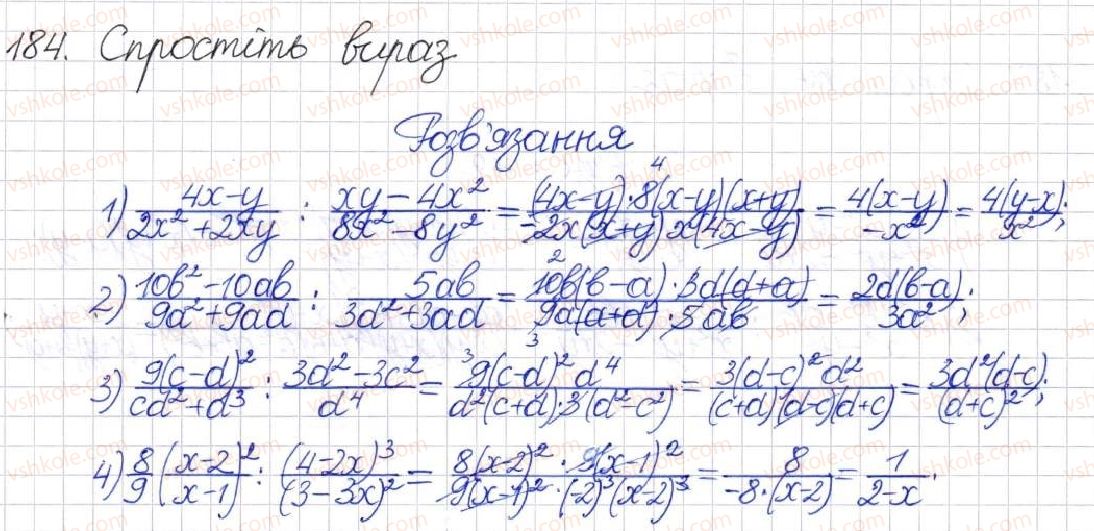 184. Спростіть вираз
Розв'язання
1) (4x-y)/(2x²+2xy) : (xy-4x²)/(8x²-8y²) = ((4x-y)·8(x-y)(x+y))/(-2x(x+y)x(4x-y)) = 4(x-y)/(-x²) = 4(y-x)/x²;
2) (10b²-10ab)/(9a²+9ad) : 5ab/(3d²+3ad) = (10b(b-a)·3d(d+a))/(9a(a+d)·5ab) = 2d(b-a)/(3a²);
3) 9(c-d)²/(cd²+d³) : (3d²-3c²)/d⁴ = (9(c-d)²d⁴)/(d²(c+d)·3(d²-c²)) = (3(d-c)²d²)/((c+d)(d-c)(d+c)) = 3d²(d-c)/(d+c)²;
4) 8/9 ((x-2)/(x-1))² : (4-2x)³/(3-3x)² = (8(x-2)²·9(x-1)²)/(9(x-1)²·(-2)³(x-2)³) = 8/(-8·(x-2)) = 1/(2-x).